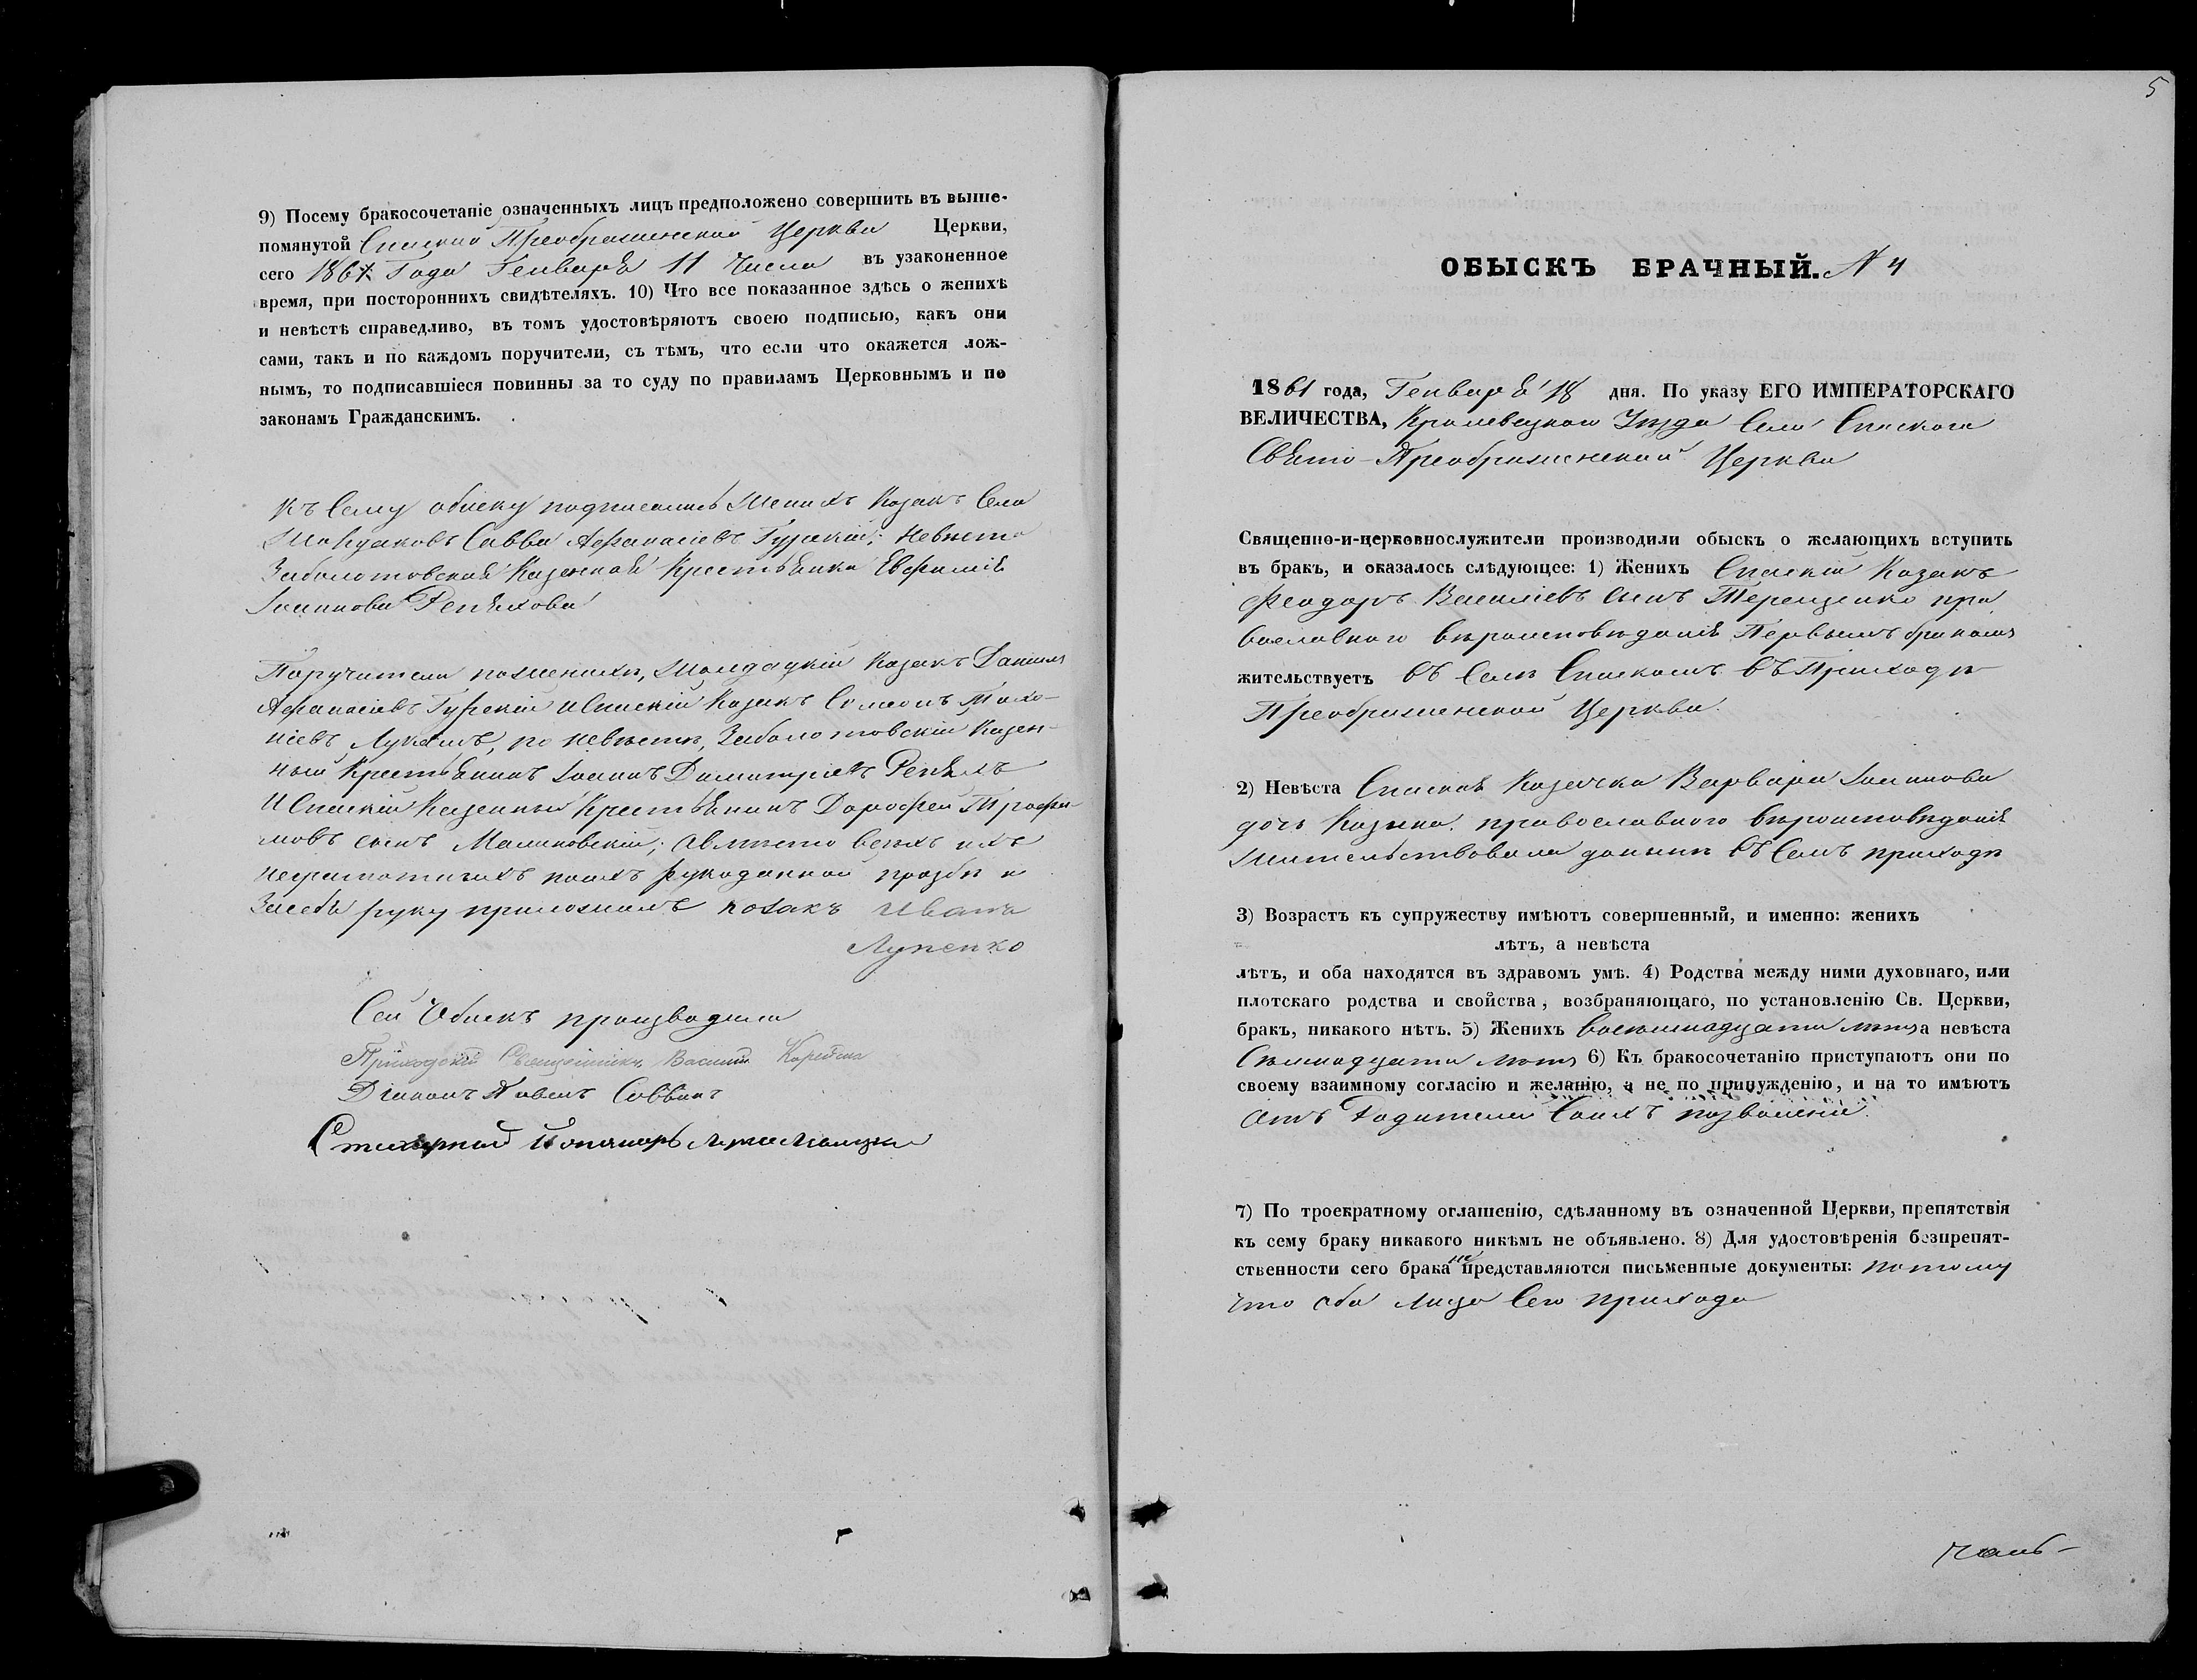 9) Посему бракосочетаніе означенныхъ лицъ предположено совершить въ выше-
помянутой Спаской Преображенской Церкви Церкви,
сего 1861 Года Генваря 11 Числа въ узаконенное
время, при постороннихъ свидѣтеляхъ. 10) Что все показанное здѣсь о женихѣ
и невѣстѣ справедливо, въ томъ удостовѣряютъ своею подписью, какъ они
сами, такъ и по каждомъ поручители, съ тѣмъ, что если что окажется лож-
нымъ, то подписавшіеся повинны за то суду по правиламъ Церковнымъ и по
законамъ Гражданскимъ.
Къ Сему обыску подписались Женихъ Козакъ Села
Савва Афанасіевъ Гурскій; Невѣста
Заболотовская Казенная Крестьянка Евфимія
Іоаннова Репяхова
Поручители по женихѣ, Козакъ Даніилъ
Афанасіевъ Гурскій и Спаскій Козакъ Симеонъ
Лукашъ, по невѣстѣ, Заболотовскій Казен-
ный Крестьянинъ Іоаннъ Димитріевъ Репяхъ
И Спаскій Казенный Крестьянинъ Дорофей Трофи-
мовъ сынъ Малиновскій; а вмѣсто всѣхъ ихъ
неграмотныхъ по ихъ рукоданной прозбѣ и
За себя руку приложилъ козакъ Иванъ
Лупенко
Сей Обыскъ производили
Приходскій Священникъ Василій
Діаконъ Павелъ Саввичъ
Стихарный Пономарь
5
ОБЫСКЪ БРАЧНЫЙ. N 4
1861 года, Генваря 18 дня. По указу ЕГО ИМПЕРАТОРСКАГО
ВЕЛИЧЕСТВА, Кролевецкого Уѣзда Села Спаского
Свято-Преображенской Церкви
Священно-и-церковнослужители производили обыскъ о желающихъ вступить
въ бракъ, и оказалось слѣдующее: 1) Женихъ Спаскій Козакъ
Феодоръ Василіевъ сынъ Терещенко пра
вославного вѣроисповѣданія Первымъ бракомъ
жительствуетъ въ Селѣ Спаскомъ въ Приходѣ
Преображенской Церкви.
2) Невѣста Спаская Козачка Варвара Іоаннова
дочь Козъка. православного вѣроисповѣданія
Жительствовала донынѣ въ Семъ приходѣ
3) Возрастъ къ супружеству имѣютъ совершенный, и именно: женихъ
лѣтъ, а невѣста
лѣтъ, и оба находятся въ здравомъ умѣ. 4) Родства между ними духовнаго, или
плотскаго родства и свойства, возбраняющаго, по установленію Св. Церкви,
бракъ, никакого нѣтъ. 5) Женихъ восемнадцати лѣтъ а невѣста
Семнадцати лѣтъ 6) Къ бракосочетанію приступаютъ они по
своему взаимному согласію и желанію, а не по принужденію, и на то имѣютъ
отъ Родителей Своихъ позволеніе.
7) По троекратному оглашенію, сдѣланному въ означенной Церкви, препятствія
къ сему браку никакого никѣмъ не объявлено. 8) Для удостовѣренія безпрепят-
ственности сего брака не представляются письменные документы: потому
что оба лица Сего прихода